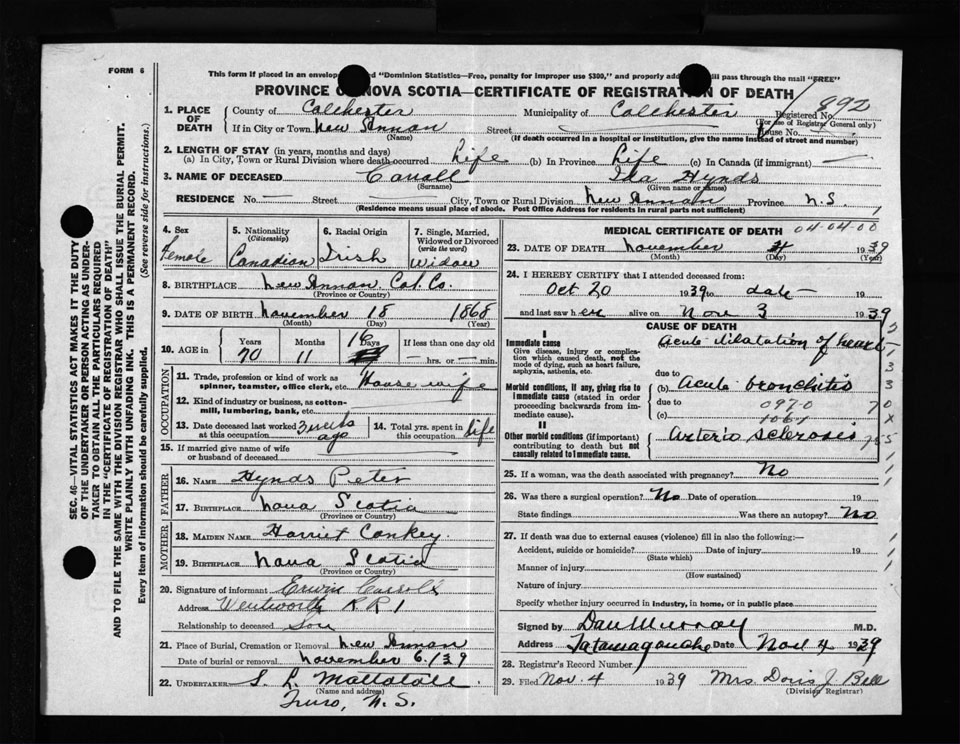 FORM 6
This form if placed in an envelope "Dominion Statistics—Free, penalty for improper use $300," and properly will pass through the mail "FREE"
PROVINCE NOVA SCOTIA—CERTIFICATE OF REGISTRATION OF DEATH
1. PLACE OF DEATH County of Colchester Municipality of Colchester Registered No. 892
(For use of Registrar General only)
If in City or Town New Annan Street House No.
(Name) (If death occurred in a hospital or institution, give the name instead of street and number)
2. LENGTH OF STAY (in years, months and days)
(a) In City, Town or Rural Division where death occurred Life (b) In Province Life (c) In Canada (if immigrant) —
3. NAME OF DECEASED Carroll Ida Hynds
(Surname) (Given name or names)
RESIDENCE No. — Street — City, Town or Rural Division New Annan Province N.S.
(Residence means usual place of abode. Post Office Address for residents in rural parts not sufficient)
4. Sex
Female
5. Nationality
(Citizenship)
Canadian
6. Racial Origin
Irish
7. Single, Married, Widowed or Divorced
(write the word)
Widow
8. BIRTHPLACE New Annan, Col. Co.
(Province or Country)
9. DATE OF BIRTH November 18 1868
(Month) (Day) (Year)
10. AGE in Years Months Days If less than one day old
70 11 16 — hrs. or — min.
OCCUPATION
11. Trade, profession or kind of work as spinner, teamster, office clerk, etc. House wife
12. Kind of industry or business, as cotton-mill, lumbering, bank, etc.
13. Date deceased last worked at this occupation 3 weeks ago
14. Total yrs. spent in this occupation life
15. If married give name of wife or husband of deceased
FATHER
16. NAME Hynds Peter
17. BIRTHPLACE Nova Scotia
(Province or Country)
MOTHER
18. MAIDEN NAME Harriet Conkey
19. BIRTHPLACE Nova Scotia
(Province or Country)
20. Signature of informant Erwin Carroll
Address Wentworth R.R 1
Relationship to deceased Son
21. Place of Burial, Cremation or Removal New Annan
Date of burial or removal November 6/39
22. UNDERTAKER S. L.
(Name and address)
Truro, N.S.
MEDICAL CERTIFICATE OF DEATH
04-04-00
23. DATE OF DEATH November 4 1939
(Month) (Day) (Year)
24. I HEREBY CERTIFY that I attended deceased from:
Oct 20 1939 to date
and last saw her alive on Nov 3 1939
CAUSE OF DEATH
I
Immediate cause
Give disease, injury or complication which caused death, not the mode of dying, such as heart failure, asphyxia, asthenia, etc.
Acute dilatation of heart
due to
Morbid conditions, if any, giving rise to immediate cause (stated in order proceeding backwards from immediate cause).
(b) Acute bronchitis
due to 0970
(c) 106a
II
Other morbid conditions (if important) contributing to death but not causally related to immediate cause.
Arterio sclerosis
25. If a woman, was the death associated with pregnancy? No
26. Was there a surgical operation? No Date of operation 19
State findings Was there an autopsy? No
27. If death was due to external causes (violence) fill in also the following:—
Accident, suicide or homicide? Date of injury 19
(State which)
Manner of injury
(How sustained)
Nature of injury
Specify whether injury occurred in industry, in home, or in public place
Signed by Dan Murray M.D.
Address Tatamagouche Date Nov 4 1939
28. Registrar's Record Number
29. Filed Nov. 4 1939 Mrs. Doris J. Bell
(Division Registrar)
SEC. 46—VITAL STATISTICS ACT MAKES IT THE DUTY
OF THE UNDERTAKER OR PERSON ACTING AS UNDER-
TAKER TO OBTAIN ALL THE PARTICULARS REQUIRED
IN THE "CERTIFICATE OF REGISTRATION OF DEATH"
AND TO FILE THE SAME WITH THE DIVISION REGISTRAR WHO SHALL ISSUE THE BURIAL PERMIT.
WRITE PLAINLY WITH UNFADING INK. THIS IS A PERMANENT RECORD.
Every item of information should be carefully supplied. (See reverse side for instructions.)